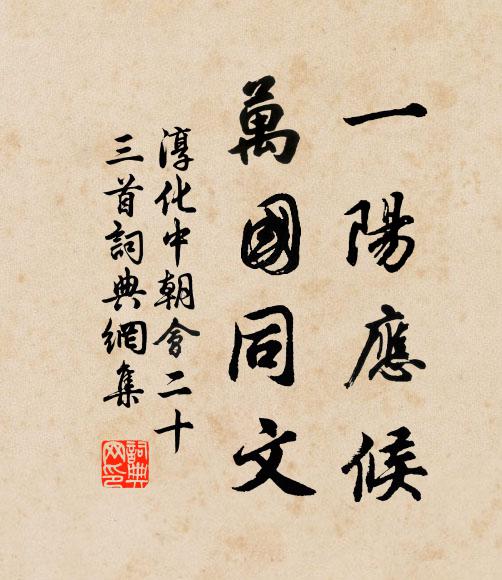 一陽應候
萬國同文
淳化中朝會二十
三首詞典網集
詞典网印